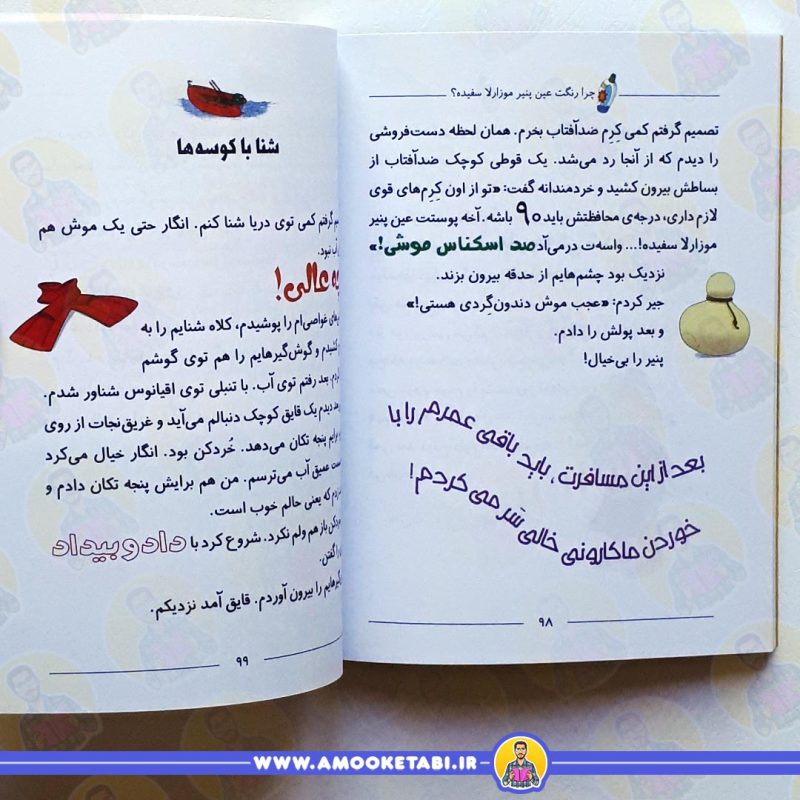 چرا رنگت عین پنیر موزارلا سفیده؟
تصمیم گرفتم کمی کِرِم ضدآفتاب بخرم. همان لحظه دست‌فروشی
را دیدم که از آنجا رد می‌شد. یک قوطی کوچک ضدآفتاب از
بساطش بیرون کشید و خردمندانه گفت: «تو از اون کِرِم‌های قوی
لازم داری، درجه‌ی محافظتش باید ۹۰ باشه. آخه پوستت عین پنیر
موزارلا سفیده!... واسه‌ت درمی‌آد صد اسکناس موشی!»
نزدیک بود چشم‌هایم از حدقه بیرون بزند.
جیر کردم: «عجب موش دندون‌گِردی هستی!»
و بعد پولش را دادم.
پنیر را بی‌خیال!
بعد از این مسافرت، باید باقی عمرم را با
خوردن ماکارونی خالی سَر می‌کردم!
۹۸
شنا با کوسه‌ها
گرفتم کمی توی دریا شنا کنم. انگار حتی یک موش هم
آب نبود.
عالی!
غواصی‌ام را پوشیدم، کلاه شنایم را به
و گوش‌گیرهایم را هم توی گوشم
بعد رفتم توی آب. با تنبلی توی اقیانوس شناور شدم.
دیدم یک قایق کوچک دنبالم می‌آید و غریق‌نجات از روی
پنجه تکان می‌دهد. خُردکن بود. انگار خیال می‌کرد
عمیق آب می‌ترسم. من هم برایش پنجه تکان دادم و
که یعنی حالم خوب است.
باز هم ولم نکرد. شروع کرد با داد و بیداد
گفتن.
را بیرون آوردم. قایق آمد نزدیکم.
۹۹
WWW.AMOOKETABI.IR